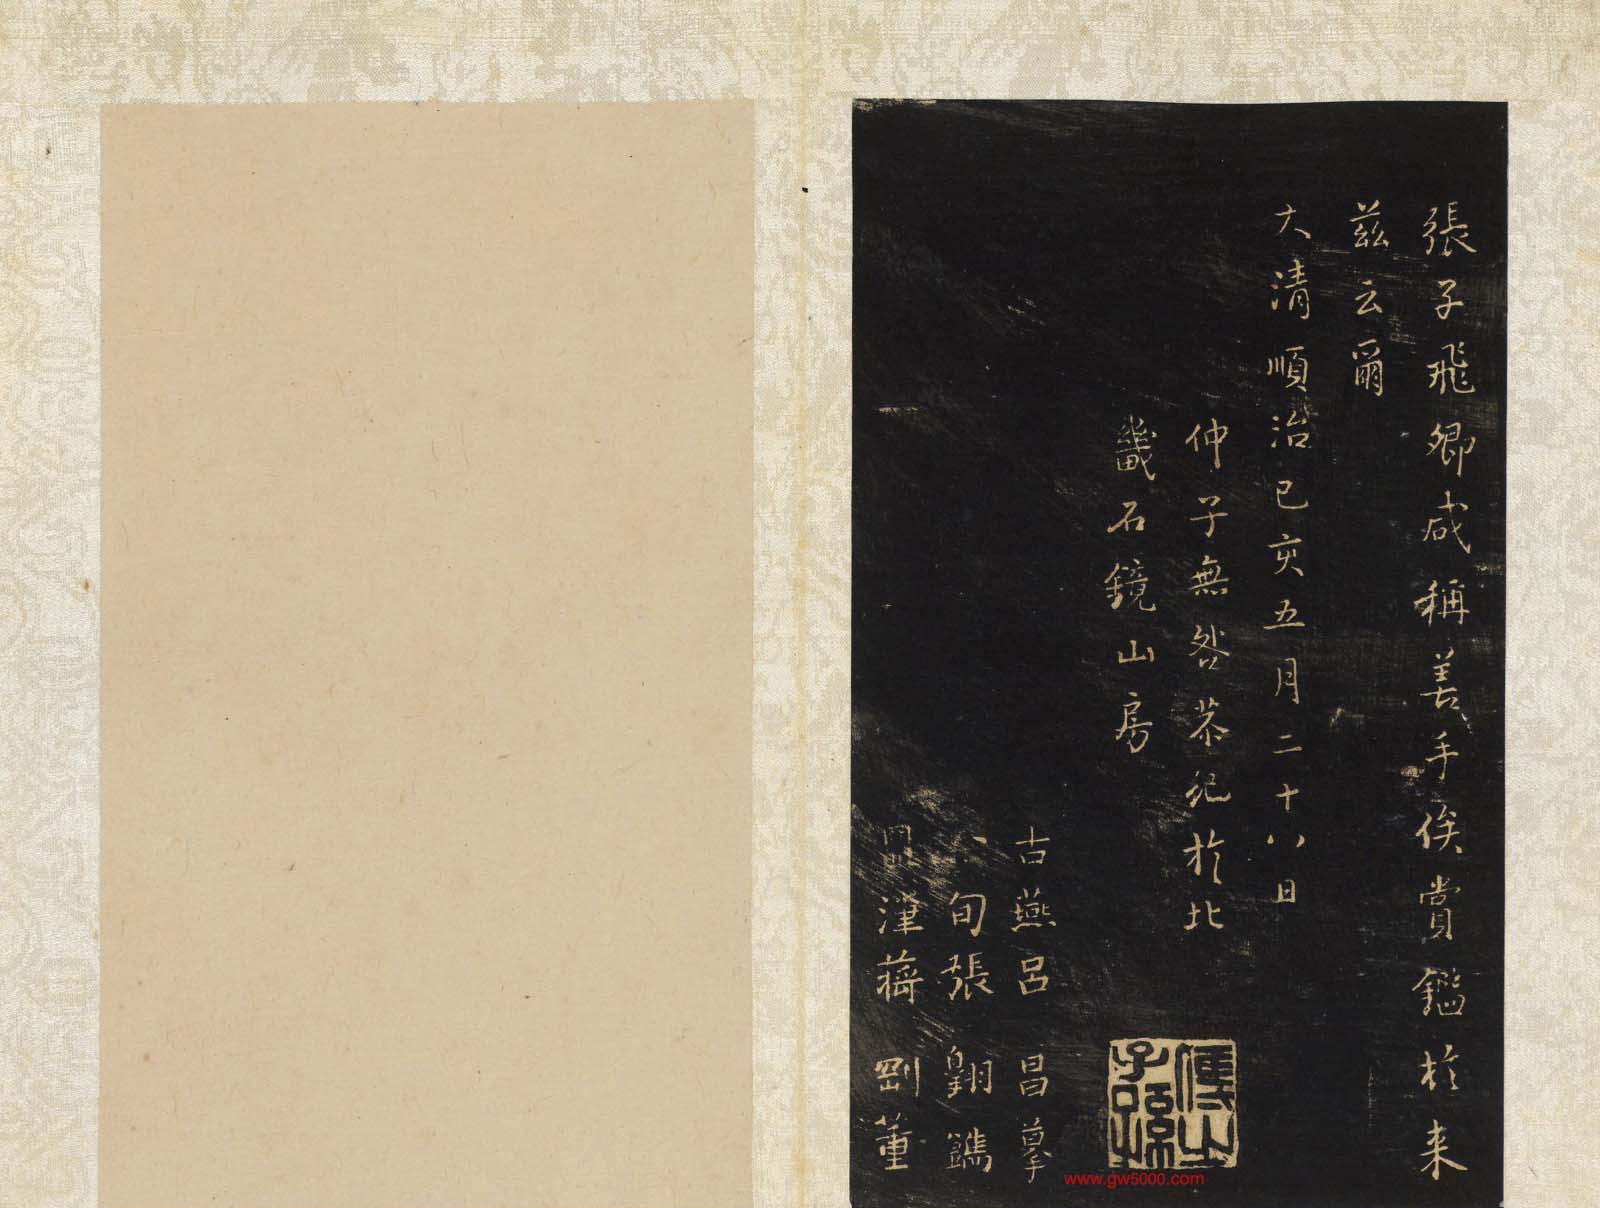 張子飛卿咸稱善手俟賞鑑於来
茲云爾
大清順治己亥五月二十八日
仲子無咎恭紀於北
畿石鏡山房
古燕呂昌摹
旬張翺鐫
津蔣劉董
www.gw5000.com